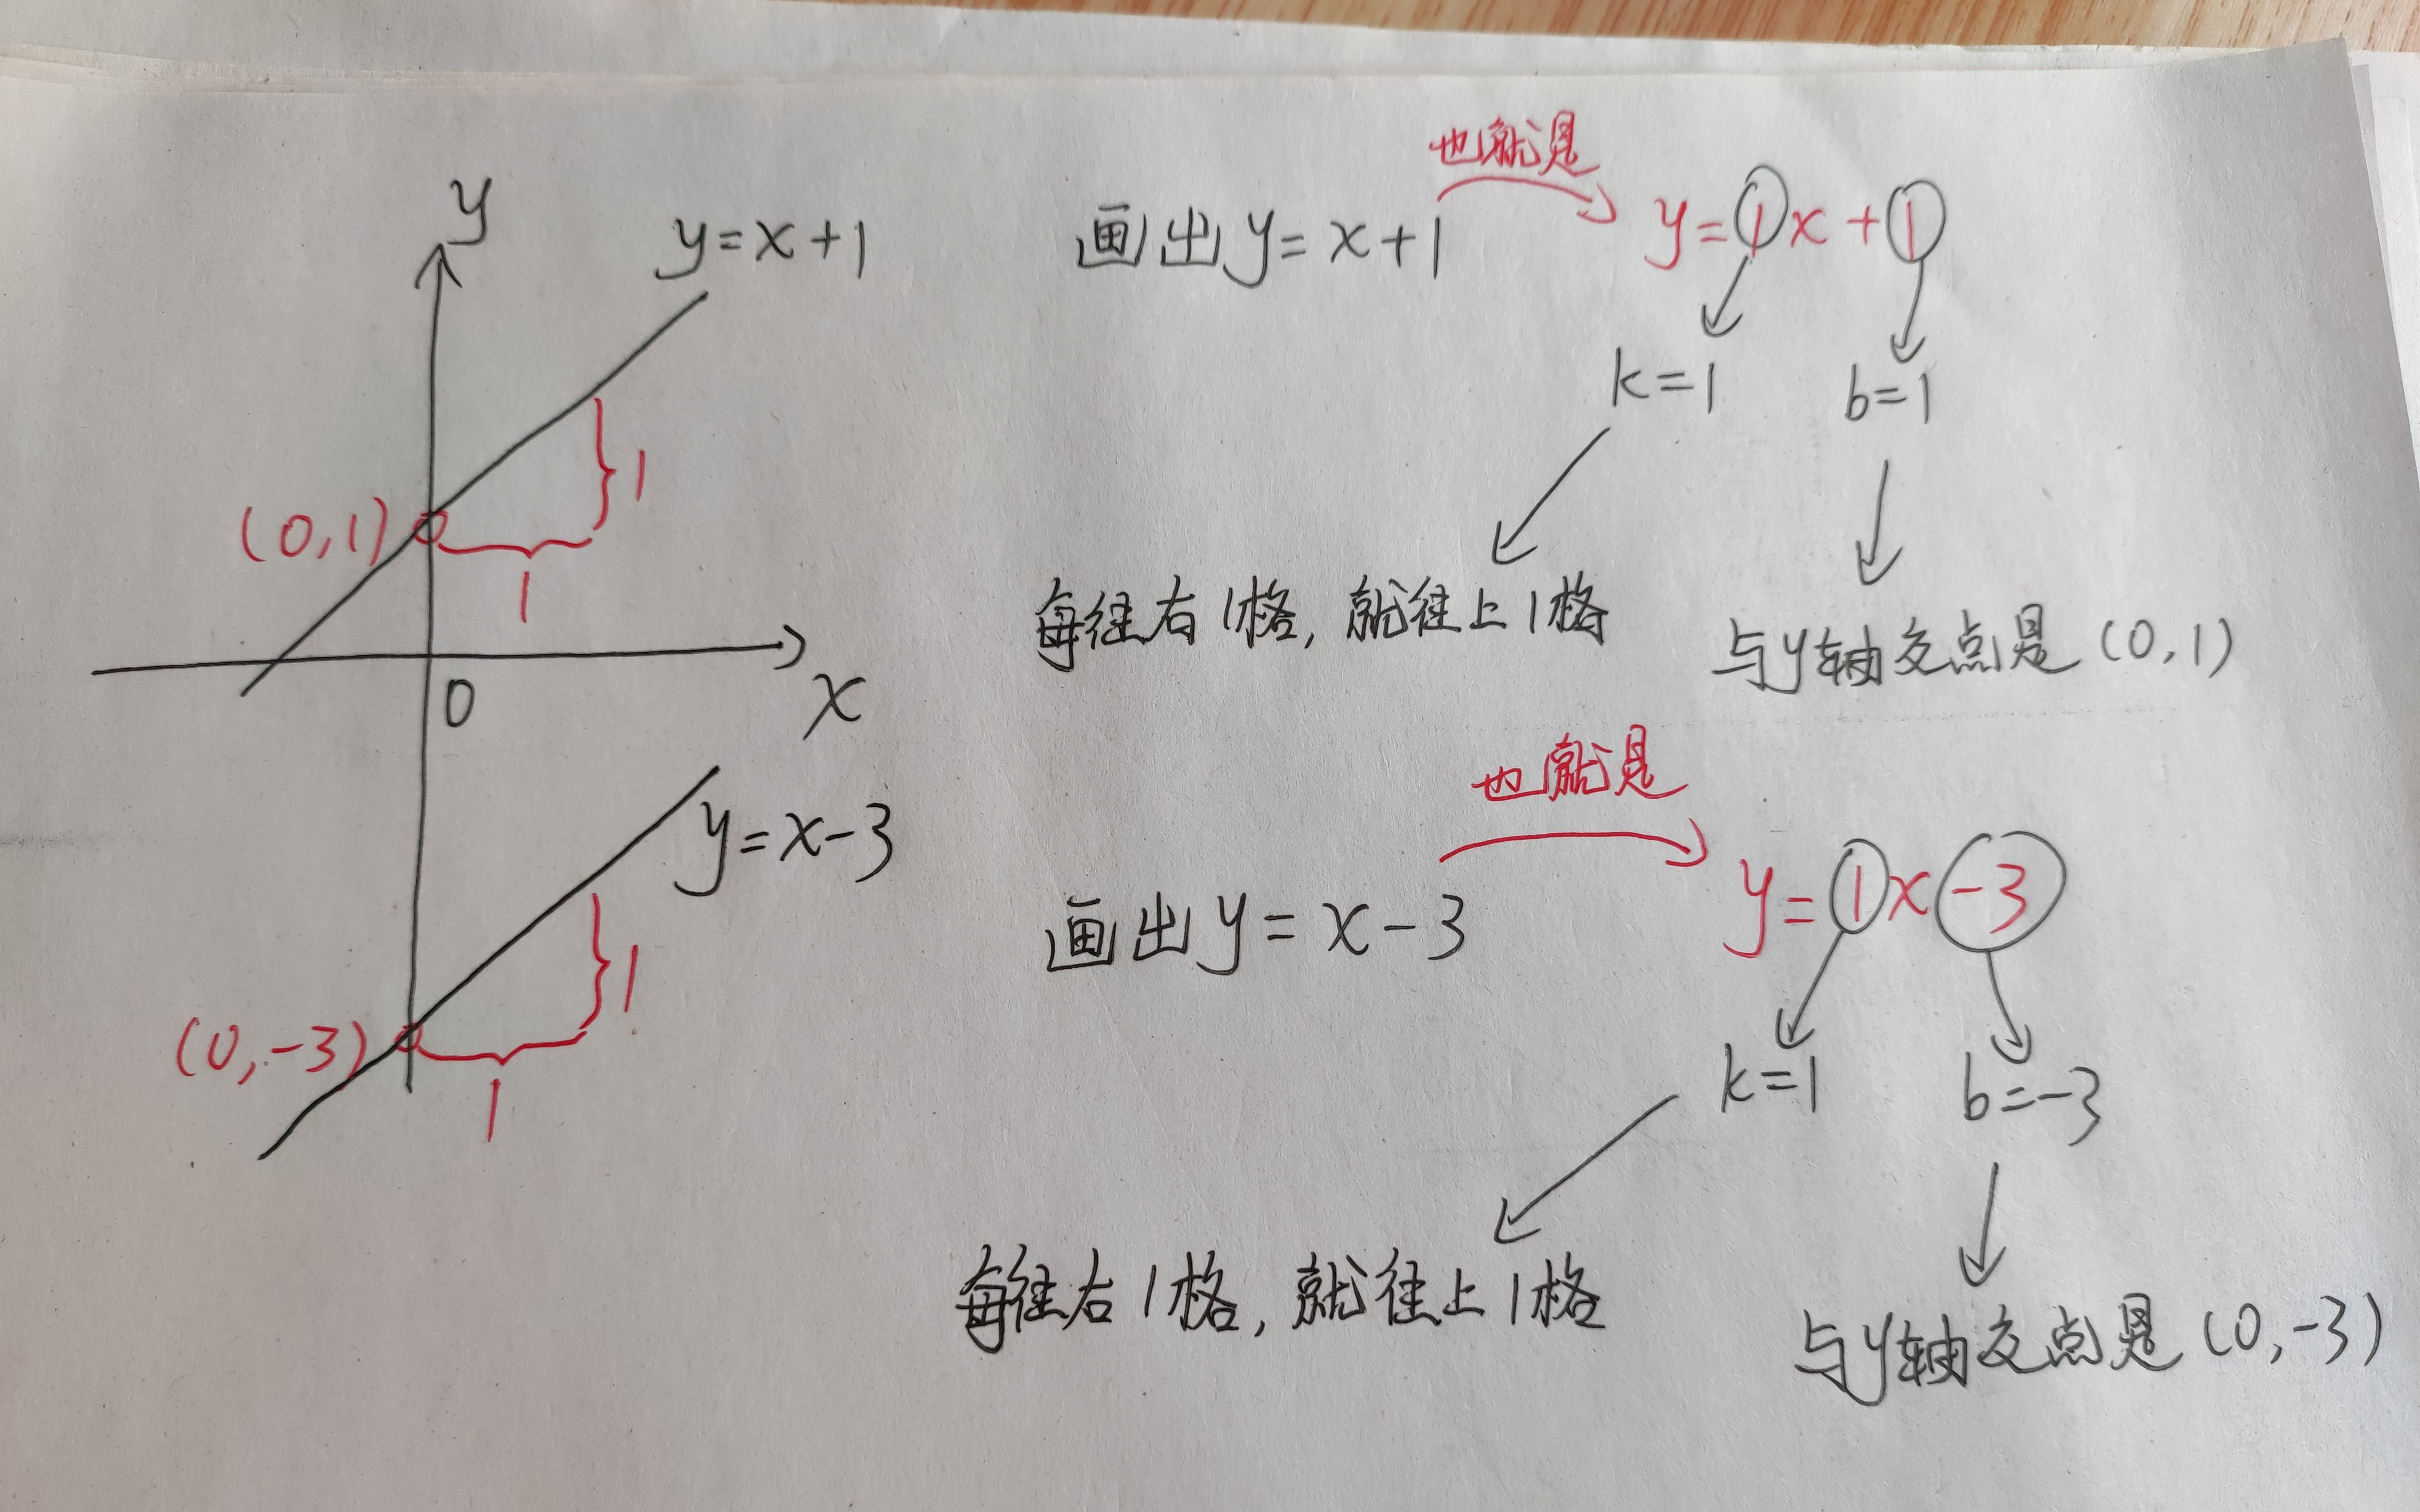 y
y=x+1
(0,1)
1
1
0
x
y=x-3
(0,-3)
1
1
也就是
画出y=x+1
y=1x+1
k=1
b=1
每往右1格,就往上1格
与y轴交点是(0,1)
也就是
画出y=x-3
y=1x-3
k=1
b=-3
每往右1格,就往上1格
与y轴交点是(0,-3)